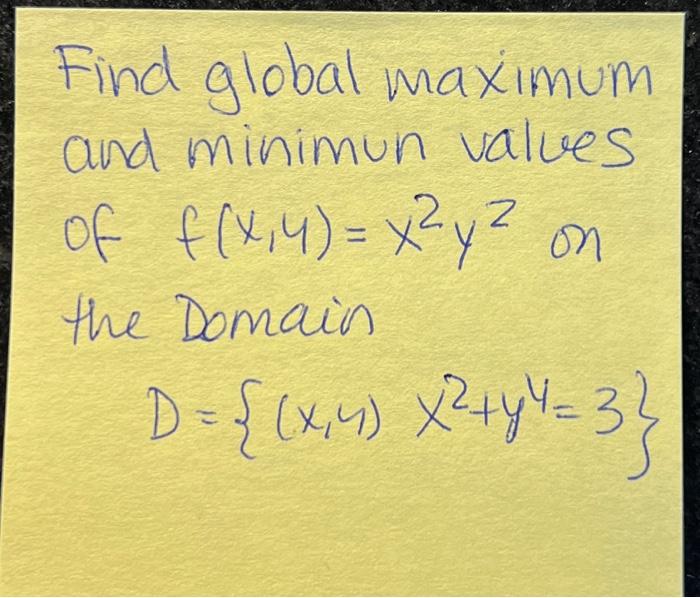 Find global maximum
and minimun values
of f(x,y) = x²y² on
the Domain
D = {(x,y) x²+y⁴=3}